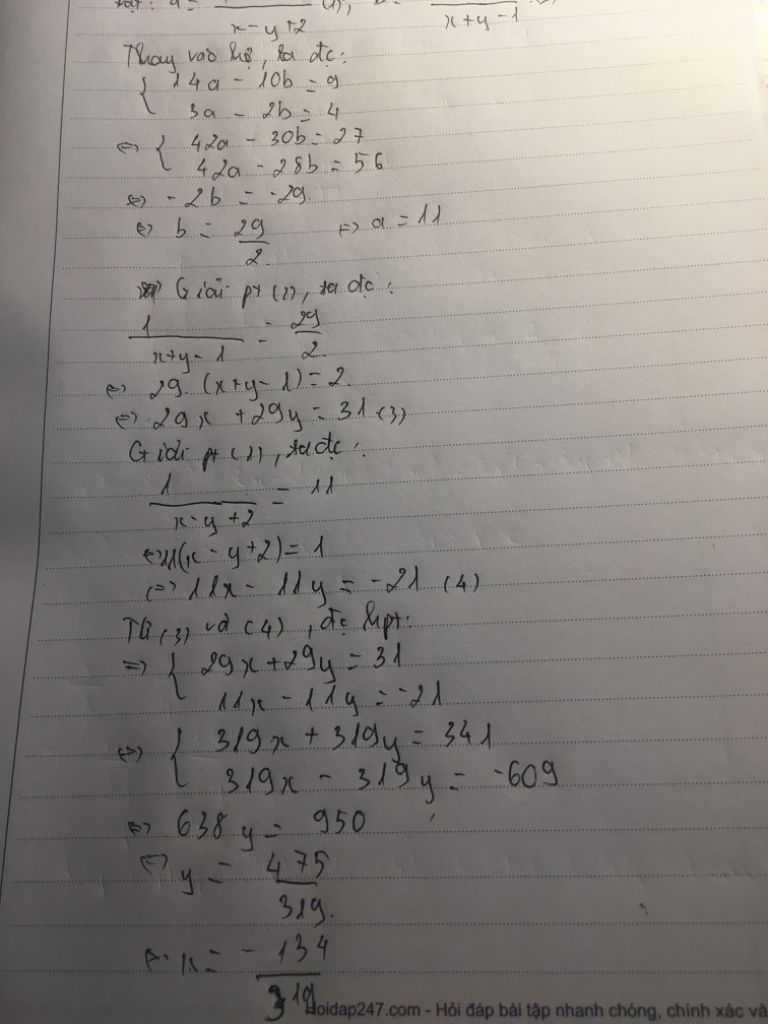 x-y+2 x+y-1
Thay vào hệ, ta đc:
{ 14a - 10b = 9
3a - 2b = 4
⇔ { 42a - 30b = 27
42a - 28b = 56
⇔ -2b = -29.
⇔ b = 29/2 ⇔ a = 11
Giải pt (2), ta đc:
1/(x+y-1) = 29/2.
⇔ 29. (x+y-1) = 2.
⇔ 29x + 29y = 31 (3)
Giải pt (1), ta đc:
1/(x-y+2) = 11
⇔ 11(x-y+2) = 1
⇔ 11x - 11y = -21 (4)
Từ (3) và (4), đc hpt:
⇒ { 29x + 29y = 31
11x - 11y = -21
⇔ { 319x + 319y = 341
319x - 319y = -609
⇔ 638y = 950
⇔ y = 475/319.
⇔ x = -134/319
hoidap247.com - Hỏi đáp bài tập nhanh chóng, chính xác và